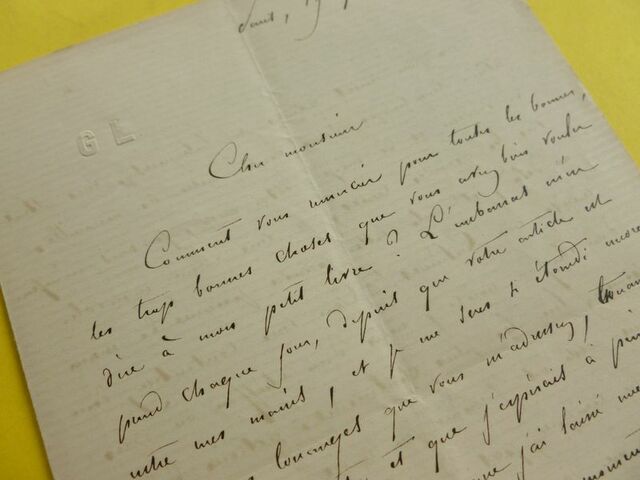 GL
Cher monsieur
Comment vous remercier pour toutes les bonnes,
les trop bonnes choses que vous avez bien voulu
dire à mon petit livre ? L'embarras m'en
prend chaque jour, depuis que votre article est
entre mes mains, et je me sens si étourdi encore
louanges que vous m'adressez,
et que j'aspirais à
que j'ai laissé